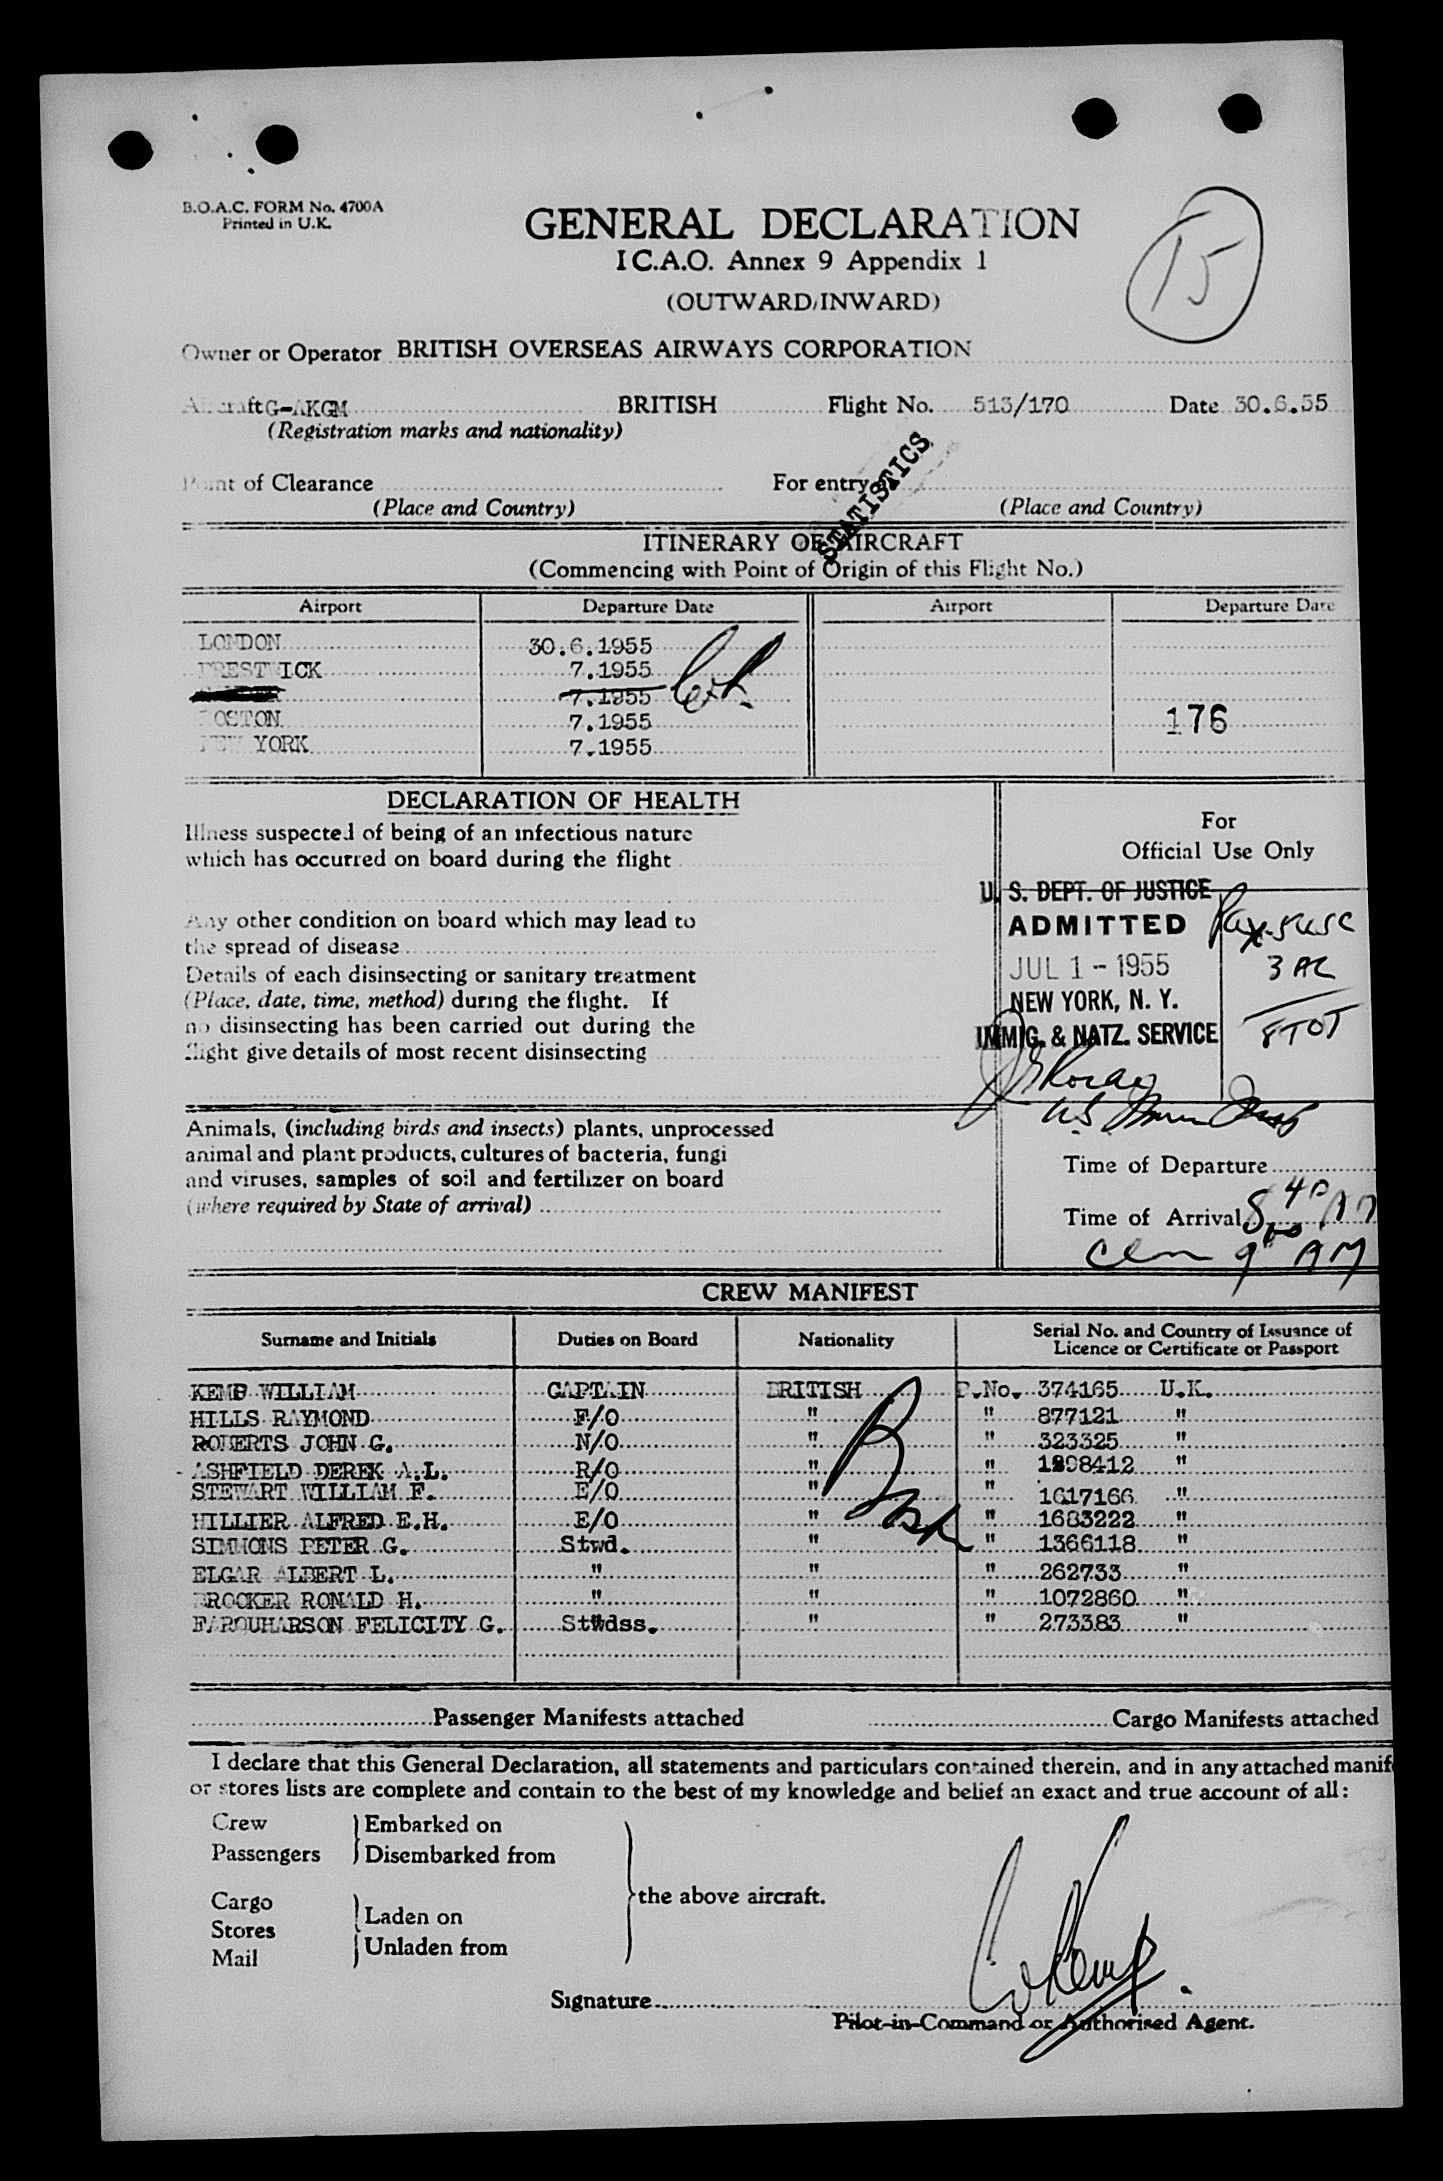 B.O.A.C. FORM No. 4700A
Printed in U.K.
GENERAL DECLARATION
I C.A.O. Annex 9 Appendix 1
(OUTWARD/INWARD)
15
Owner or Operator BRITISH OVERSEAS AIRWAYS CORPORATION
Aircraft G-AKGM BRITISH Flight No. 513/170 Date 30.6.55
(Registration marks and nationality)
STATISTICS
Point of Clearance For entry
(Place and Country) (Place and Country)
ITINERARY OF AIRCRAFT
(Commencing with Point of Origin of this Flight No.)
Airport Departure Date Airport Departure Date
LONDON 30.6.1955
PRESTWICK 7.1955
7.1955
BOSTON 7.1955 176
NEW YORK 7.1955
DECLARATION OF HEALTH
Illness suspected of being of an infectious nature
which has occurred on board during the flight
Any other condition on board which may lead to
the spread of disease
Details of each disinsecting or sanitary treatment
(Place, date, time, method) during the flight. If
no disinsecting has been carried out during the
flight give details of most recent disinsecting
For
Official Use Only
U. S. DEPT. OF JUSTICE
ADMITTED
JUL 1 - 1955
NEW YORK, N. Y.
IMMIG. & NATZ. SERVICE
3 AC
8 TOT
Animals, (including birds and insects) plants, unprocessed
animal and plant products, cultures of bacteria, fungi
and viruses, samples of soil and fertilizer on board
(where required by State of arrival)
Time of Departure
Time of Arrival 8 40 AM
9 AM
CREW MANIFEST
Surname and Initials Duties on Board Nationality Serial No. and Country of Issuance of
Licence or Certificate or Passport
KEMP WILLIAM CAPTAIN BRITISH P.No. 374165 U.K.
HILLS RAYMOND F/O " " 877121 "
ROBERTS JOHN G. N/O " " 323325 "
ASHFIELD DEREK A.L. R/O " " 1208412 "
STEWART WILLIAM F. E/O " " 1617166 "
HILLIER ALFRED E.H. E/O " " 1683222 "
SIMMONS PETER G. Stwd. " " 1366118 "
ELGAR ALBERT L. " " " 262733 "
BROCKER RONALD H. " " " 1072860 "
FARQUHARSON FELICITY G. Stwdss. " " 273383 "
Passenger Manifests attached Cargo Manifests attached
I declare that this General Declaration, all statements and particulars contained therein, and in any attached manif
or stores lists are complete and contain to the best of my knowledge and belief an exact and true account of all:
Crew Embarked on
Passengers Disembarked from
the above aircraft.
Cargo
Stores Laden on
Mail Unladen from
Signature
Pilot-in-Command or Authorised Agent.